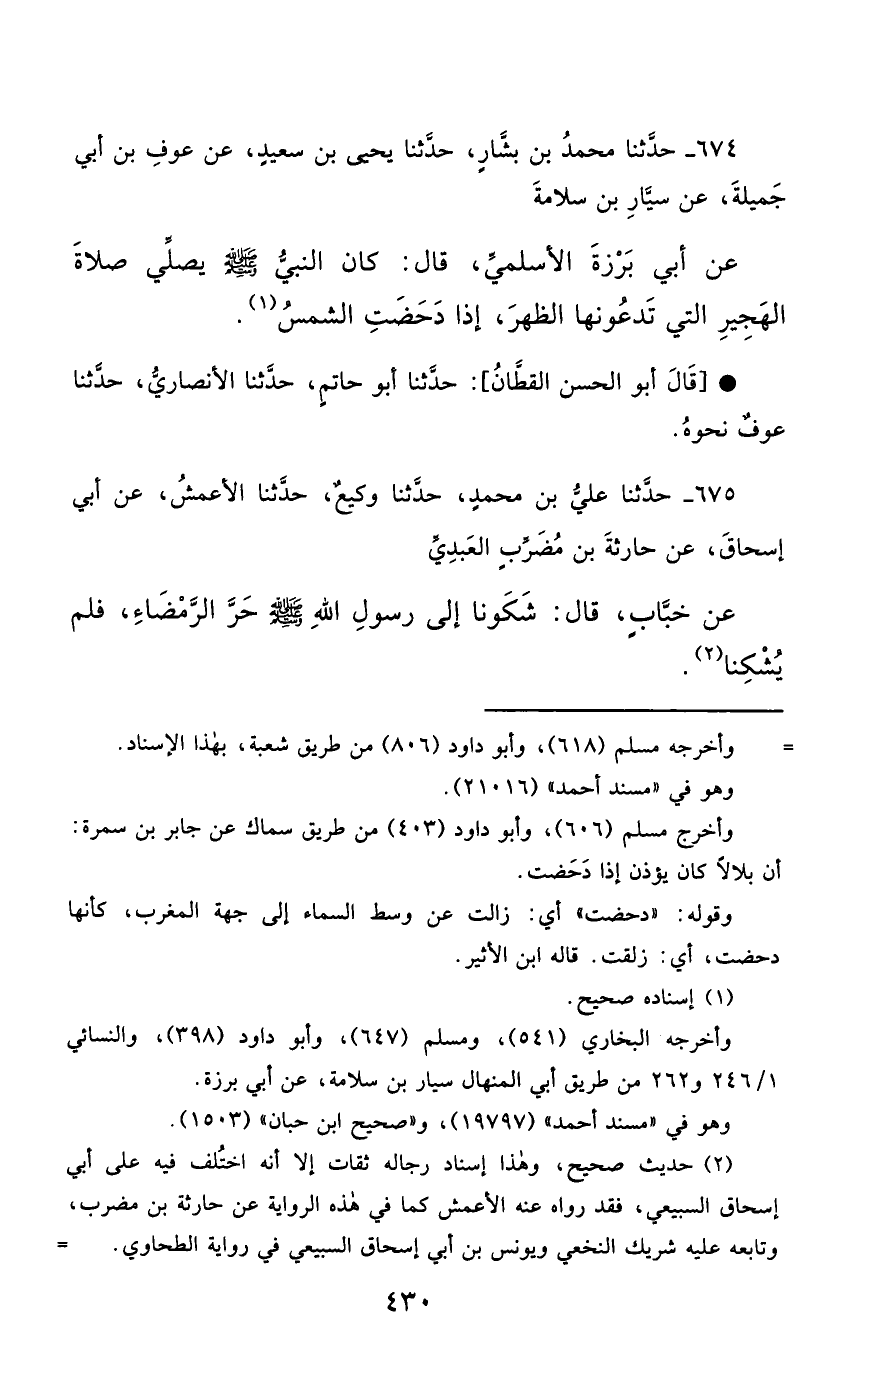 ٦٧٤ـ حدَّثنا محمدُ بن بشَّارٍ، حدَّثنا يحيى بن سعيدٍ، عن عوفِ بن أبي
جَميلةَ، عن سيَّارِ بن سلامةَ
عن أبي بَرْزةَ الأسلميِّ، قال: كان النبيُّ ﷺ يصلِّي صلاةَ
الهَجِيرِ التي تَدعُونها الظهرَ، إذا دَحَضَتِ الشمسُ(١).
● [قَالَ أبو الحسن القطَّانُ]: حدَّثنا أبو حاتمٍ، حدَّثنا الأنصاريُّ، حدَّثنا
عوفٌ نحوهُ.
٦٧٥ـ حدَّثنا عليُّ بن محمدٍ، حدَّثنا وكيعٌ، حدَّثنا الأعمشُ، عن أبي
إسحاقَ، عن حارثةَ بن مُضَرِّبٍ العَبدِيِّ
عن خبَّابٍ، قال: شَكَونا إلى رسولِ اللهِ ﷺ حَرَّ الرَّمْضَاءِ، فلم
يُشْكِنا(٢).
= وأخرجه مسلم (٦١٨)، وأبو داود (٨٠٦) من طريق شعبة، بهٰذا الإسناد.
وهو في «مسند أحمد» (٢١٠١٦).
وأخرج مسلم (٦٠٦)، وأبو داود (٤٠٣) من طريق سماك عن جابر بن سمرة:
أن بلالاً كان يؤذن إذا دَحَضت.
وقوله: «دحضت» أي: زالت عن وسط السماء إلى جهة المغرب، كأنها
دحضت، أي: زلقت. قاله ابن الأثير.
(١) إسناده صحيح.
وأخرجه البخاري (٥٤١)، ومسلم (٦٤٧)، وأبو داود (٣٩٨)، والنسائي
١/ ٢٤٦ و٢٦٢ من طريق أبي المنهال سيار بن سلامة، عن أبي برزة.
وهو في «مسند أحمد» (١٩٧٩٧)، و«صحيح ابن حبان» (١٥٠٣).
(٢) حديث صحيح، وهٰذا إسناد رجاله ثقات إلا أنه اختُلف فيه على أبي
إسحاق السبيعي، فقد رواه عنه الأعمش كما في هٰذه الرواية عن حارثة بن مضرب،
وتابعه عليه شريك النخعي ويونس بن أبي إسحاق السبيعي في رواية الطحاوي. =
٤٣٠